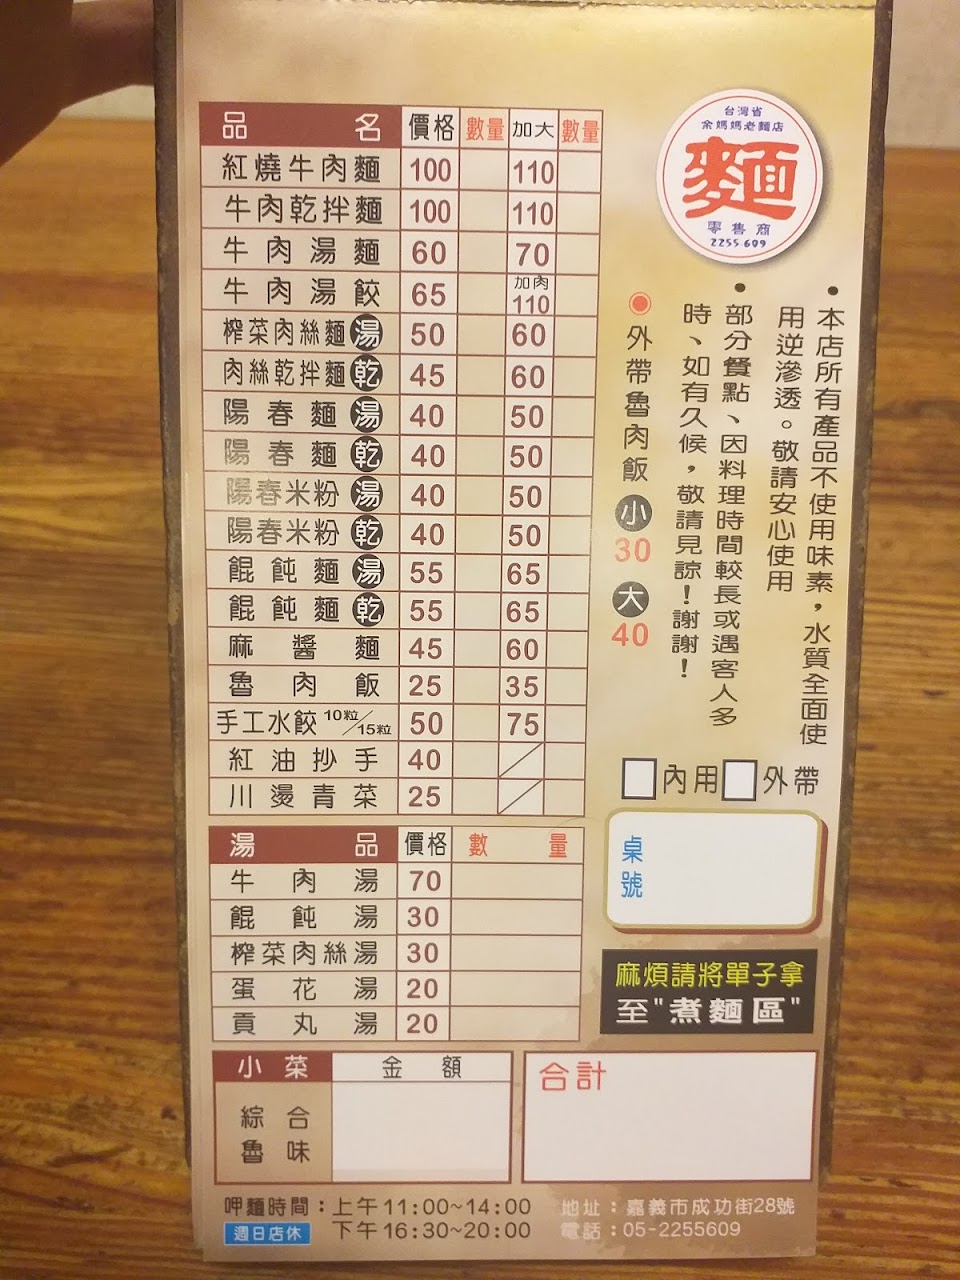 品名 價格 數量 加大 數量
紅燒牛肉麵 100 110
牛肉乾拌麵 100 110
牛肉湯麵 60 70
牛肉湯餃 65 加肉 110
榨菜肉絲麵 湯 50 60
肉絲乾拌麵 乾 45 60
陽春麵 湯 40 50
陽春麵 乾 40 50
陽春米粉 湯 40 50
陽春米粉 乾 40 50
餛飩麵 湯 55 65
餛飩麵 乾 55 65
麻醬麵 45 60
魯肉飯 25 35
手工水餃 10粒/15粒 50 75
紅油抄手 40
川燙青菜 25
湯品 價格 數量
牛肉湯 70
餛飩湯 30
榨菜肉絲湯 30
蛋花湯 20
貢丸湯 20
小菜 金額
綜合
魯味
合計
台灣省
余媽媽老麵店
麵
零售商
2255.609
•本店所有產品不使用味素，水質全面使
用逆滲透。敬請安心使用
•部分餐點、因料理時間較長或遇客人多
時、如有久候，敬請見諒！謝謝！
外帶魯肉飯 小 30 大 40
內用 外帶
桌號
麻煩請將單子拿
至"煮麵區"
呷麵時間：上午11:00~14:00
週日店休 下午16:30~20:00
地址：嘉義市成功街28號
電話：05-2255609